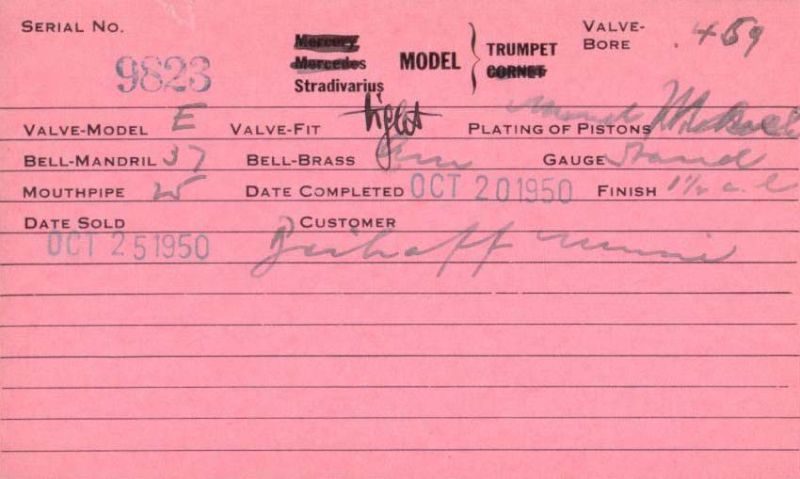 SERIAL NO. 9823 Mercury Mercedes Stradivarius MODEL TRUMPET CORNET VALVE-BORE .459
VALVE-MODEL E VALVE-FIT tight PLATING OF PISTONS
BELL-MANDRIL 37 BELL-BRASS GAUGE Stand
MOUTHPIPE 25 DATE COMPLETED OCT 20 1950 FINISH
DATE SOLD OCT 25 1950 CUSTOMER